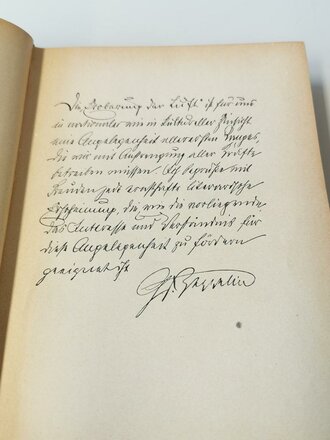 Die Eroberung der Luft ist für uns
in nationaler wie in kultureller Hinsicht
eine Angelegenheit allerersten Ranges,
die wir mit Anspannung aller Kräfte
betreiben müssen. Ich begrüße mit
Freuden jede ernsthafte literarische
Erscheinung, die, wie die vorliegende
das Interesse und Verständnis für
diese Angelegenheit zu fördern
geeignet ist.
Gf. Zeppelin